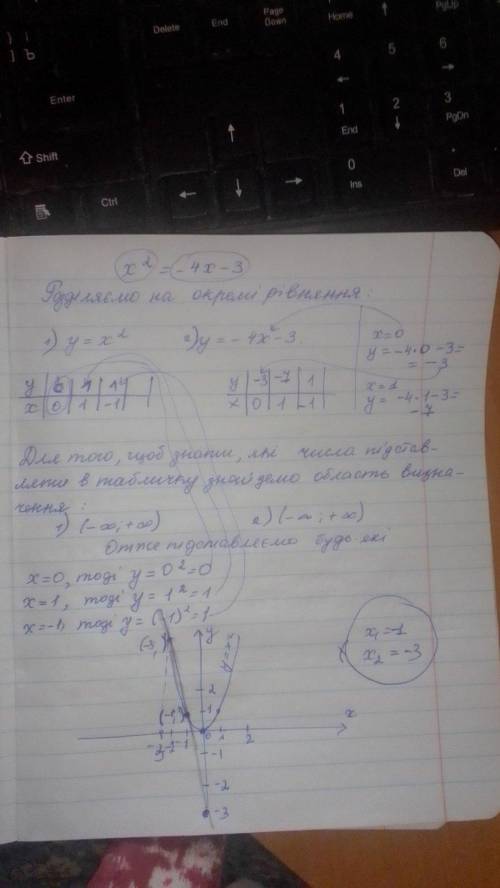 Delete End Page Down Home ↑ PgUp
] } Ъ
4 ← 5 6 →
Enter
↑ 1 End 2 ↓ 3 PgDn
Shift
Ctrl ← ↓ → 0 Ins Del
x² = -4x-3
на окремі рівняння:
1) y = x² 2) y = -4x - 3
x=0
y = -4·0-3=
= -3
x=1
y = -4·1-3=
-7
y | 0 | 1 | 1
x | 0 | 1 | -1
y | -3 | -7 | 1
x | 0 | 1 | -1
Для того, щоб знати, які числа підстав-
ляти в табличку знайдемо область визна-
чення:
1) (-∞; +∞) 2) (-∞; +∞)
Отже підставляємо будь які
x=0, тоді y = 0² = 0
x=1, тоді y = 1² = 1
x=-1, тоді y = (-1)² = 1
x₁ = -1
x₂ = -3
y
y=x²
(-3,
2
(-1,
1
x
-3 -2 -1 0 1 2
-1
-2
-3